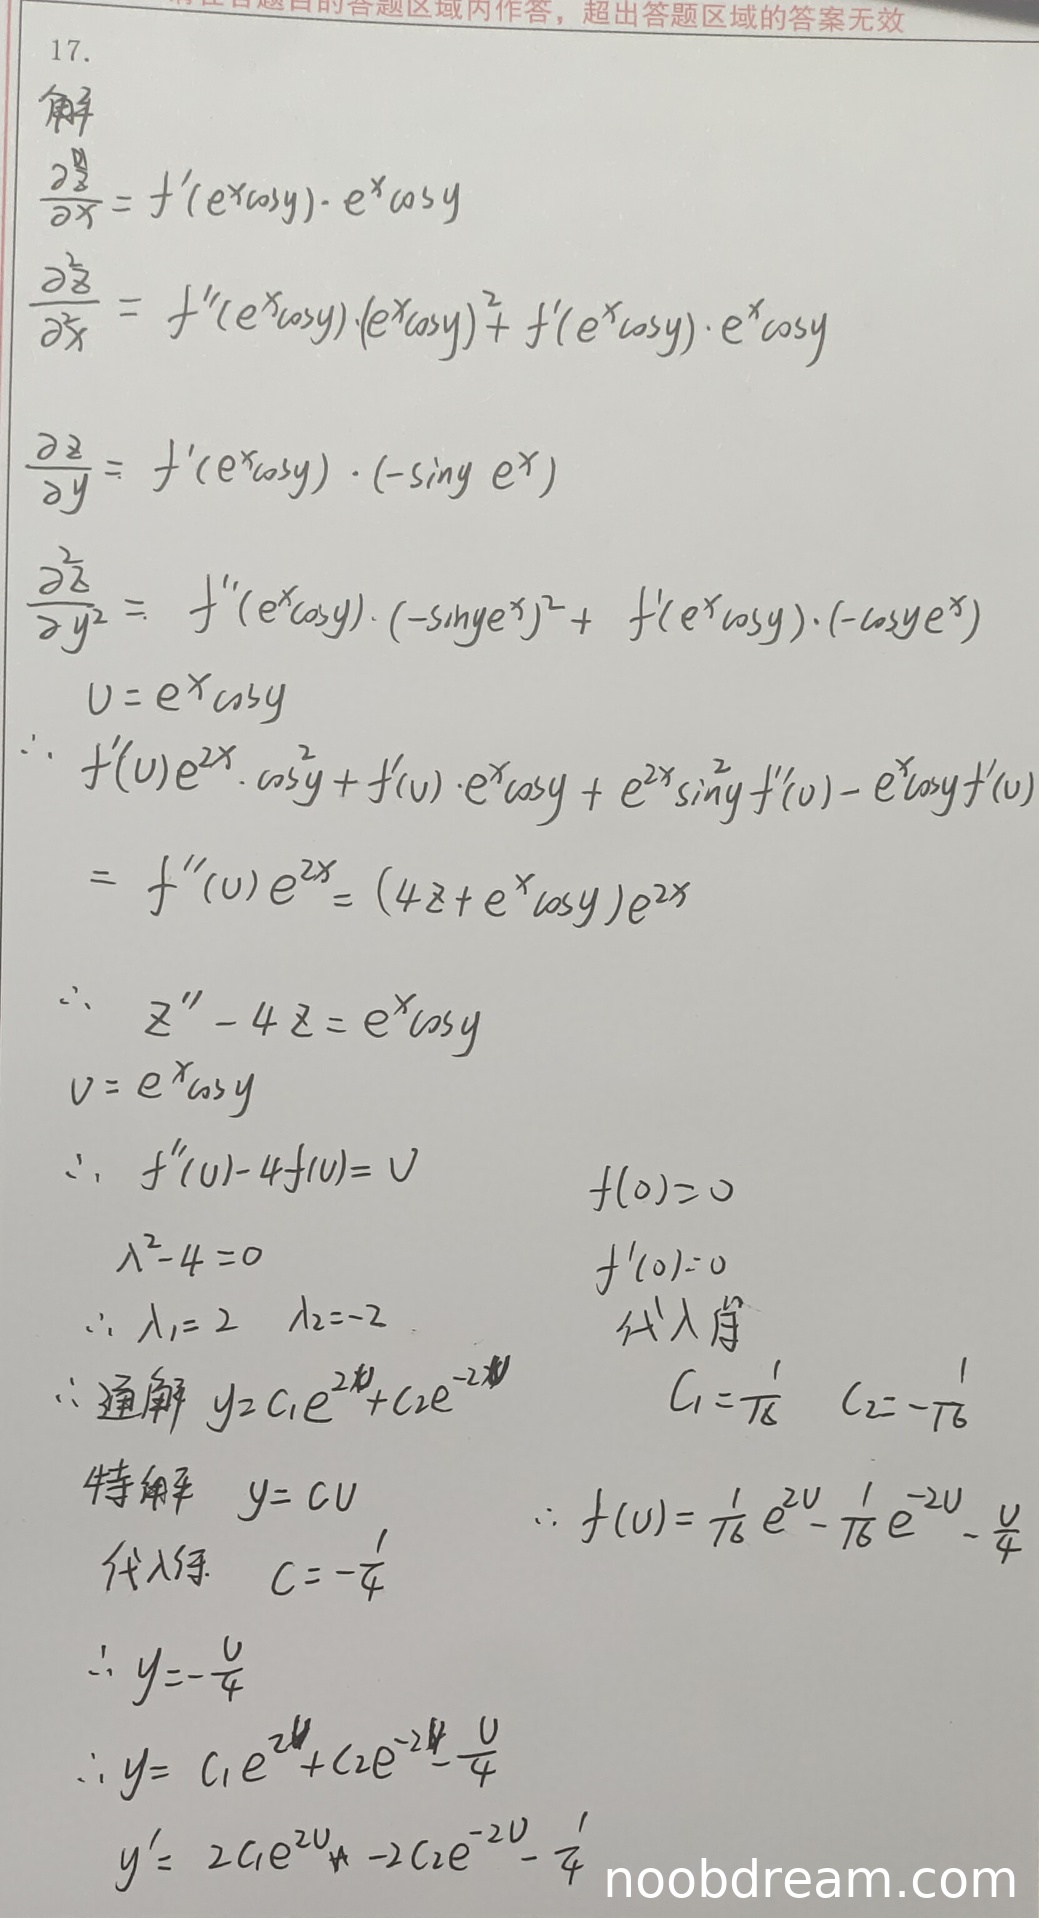 请在各题目的答题区域内作答，超出答题区域的答案无效
17.
解
∂z/∂x = f′(eˣcosy)·eˣcosy
∂²z/∂²x = f″(eˣcosy)·(eˣcosy)² + f′(eˣcosy)·eˣcosy
∂z/∂y = f′(eˣcosy)·(-siny eˣ)
∂²z/∂y² = f″(eˣcosy)·(-sinyeˣ)² + f′(eˣcosy)·(-cosyeˣ)
U = eˣcosy
∴ f′(U)e²ˣ·cos²y + f′(U)·eˣcosy + e²ˣsin²y f″(U) - eˣcosy f′(U)
= f″(U)e²ˣ = (4z + eˣcosy)e²ˣ
∴ z″ - 4z = eˣcosy
U = eˣcosy
∴ f″(U) - 4f(U) = U
λ² - 4 = 0
∴ λ₁ = 2 λ₂ = -2
∴ 通解 y = C₁e^{2U} + C₂e^{-2U}
特解 y = CU
代入得 C = -1/4
∴ y = -U/4
∴ y = C₁e^{2U} + C₂e^{-2U} - U/4
y′ = 2C₁e^{2U} -2C₂e^{-2U} - 1/4
f(0) = 0
f′(0) = 0
代入得
C₁ = 1/16 C₂ = -1/16
∴ f(U) = 1/16 e^{2U} - 1/16 e^{-2U} - U/4
noobdream.com